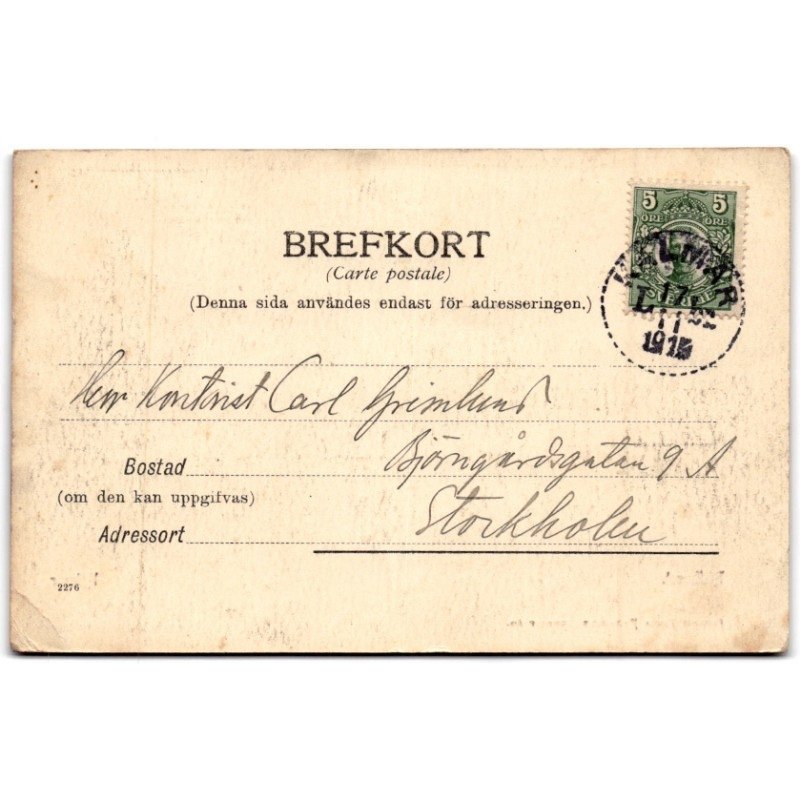 BREFKORT
(Carte postale)
(Denna sida användes endast för adresseringen.)
5 5
ÖRE ÖRE
KALMAR
17
11
1915
Herr Kontorist Carl Grimlund
Björngårdsgatan 9 A
Stockholm
Bostad
(om den kan uppgifvas)
Adressort
2276